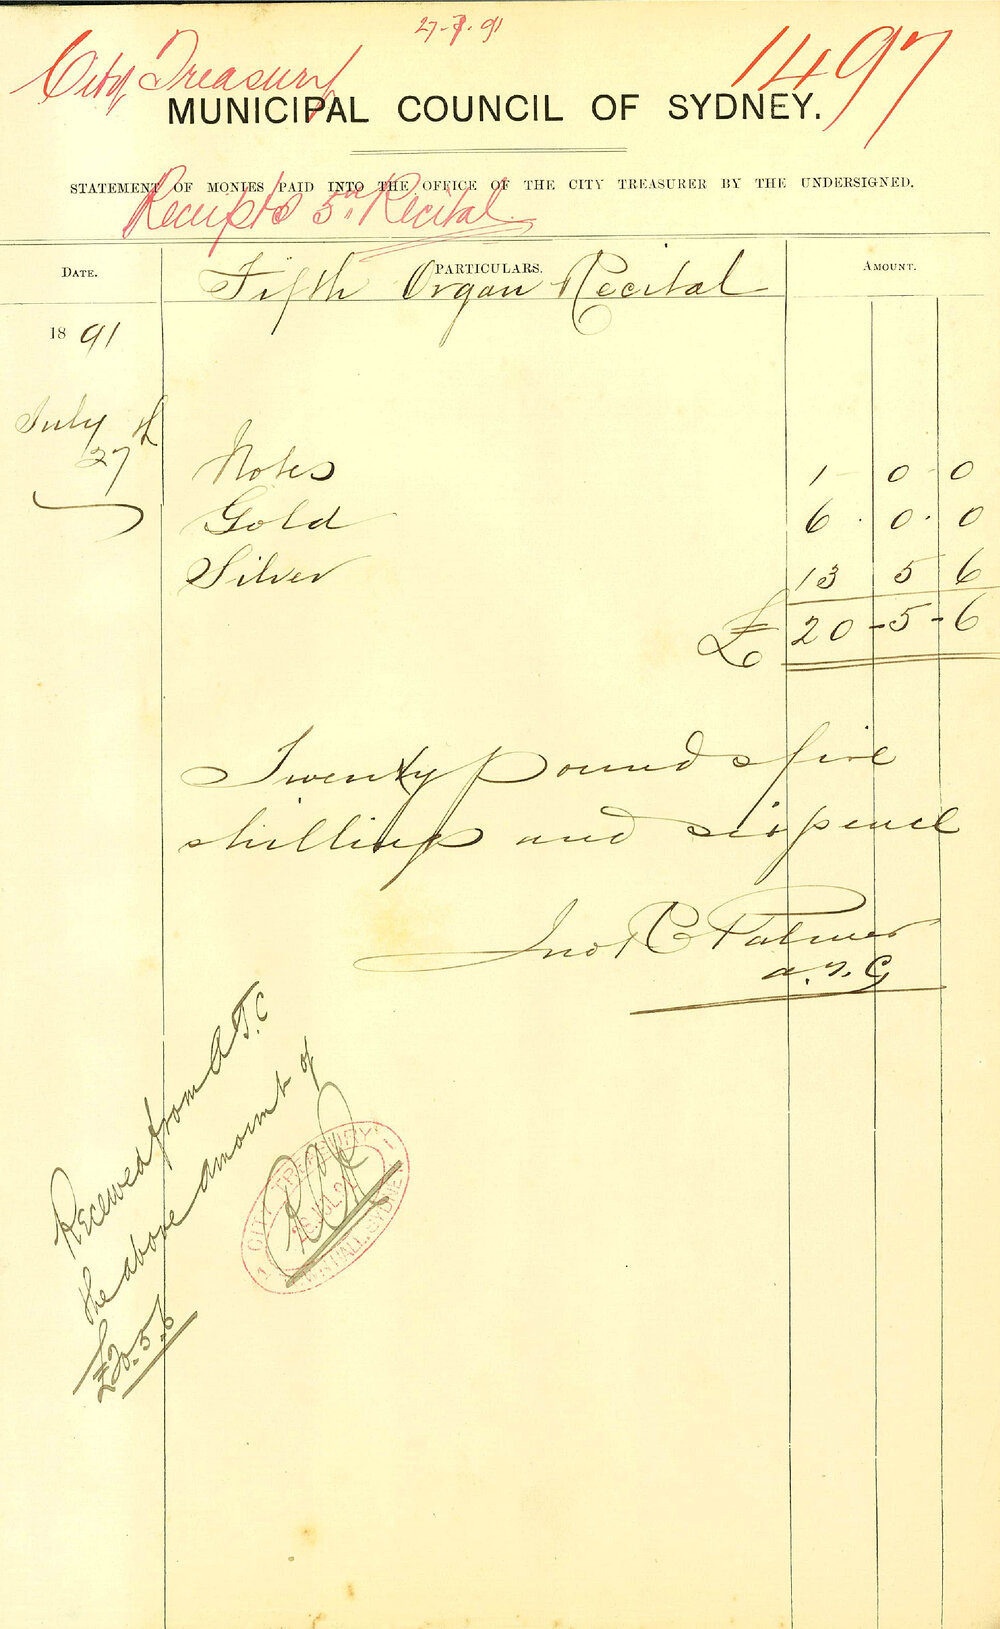 27-7-91
City Treasury
1497
MUNICIPAL COUNCIL OF SYDNEY.
STATEMENT OF MONIES PAID INTO THE OFFICE OF THE CITY TREASURER BY THE UNDERSIGNED.
Receipts 5th Recital
DATE. PARTICULARS. AMOUNT.
Fifth Organ Recital
1891
July 27th
Notes 1 - 0 - 0
Gold 6 . 0 . 0
Silver 13 5 6
£ 20 - 5 - 6
Twenty pounds five
shillings and sixpence
Jno R C Palmer
a.T.C
Received from A T.C
the above amount of
£20.5.6
CITY TREASURY
28 JUL 91
TOWN HALL, SYDNEY